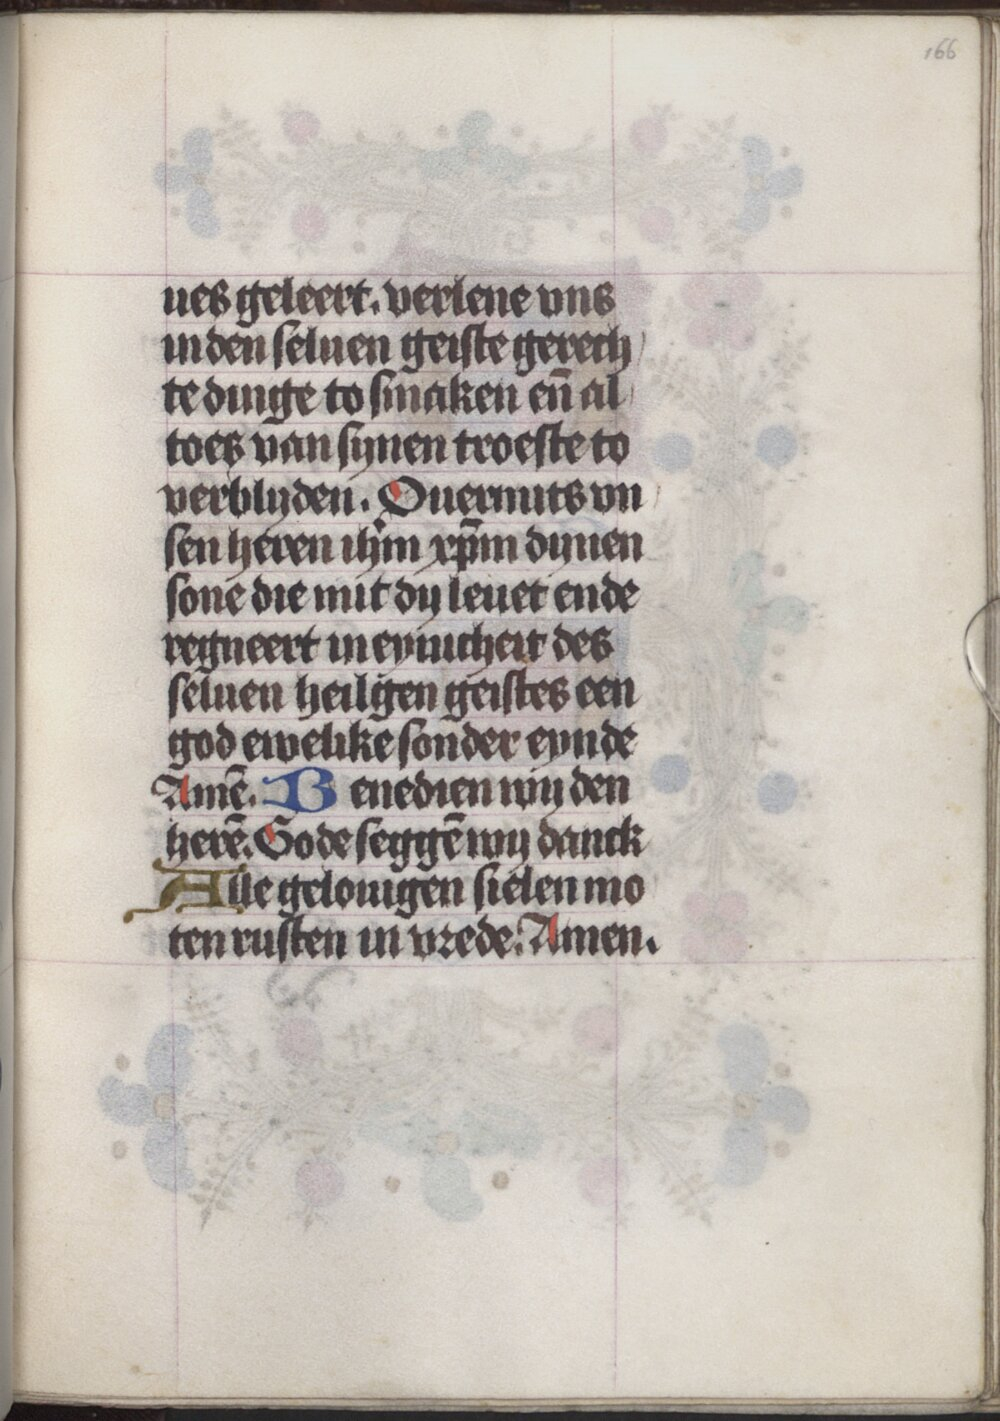 166
ues geleert. verlene vns
in den seluen geiste gerech
te dinge to smaken en̄ al
toes van synen troeste to
verblyden. Ouermits vn
sen heren ihm̄ xp̄m dynen
sone die mit dy leuet ende
regneert in eynicheit des
seluen heiligen geistes een
god ewelike sonder eynde
Amē. Benedien wy den
herē. Gode seggē wy danck
Alle gelouigen sielen mo
ten rusten in vrede. Amen.